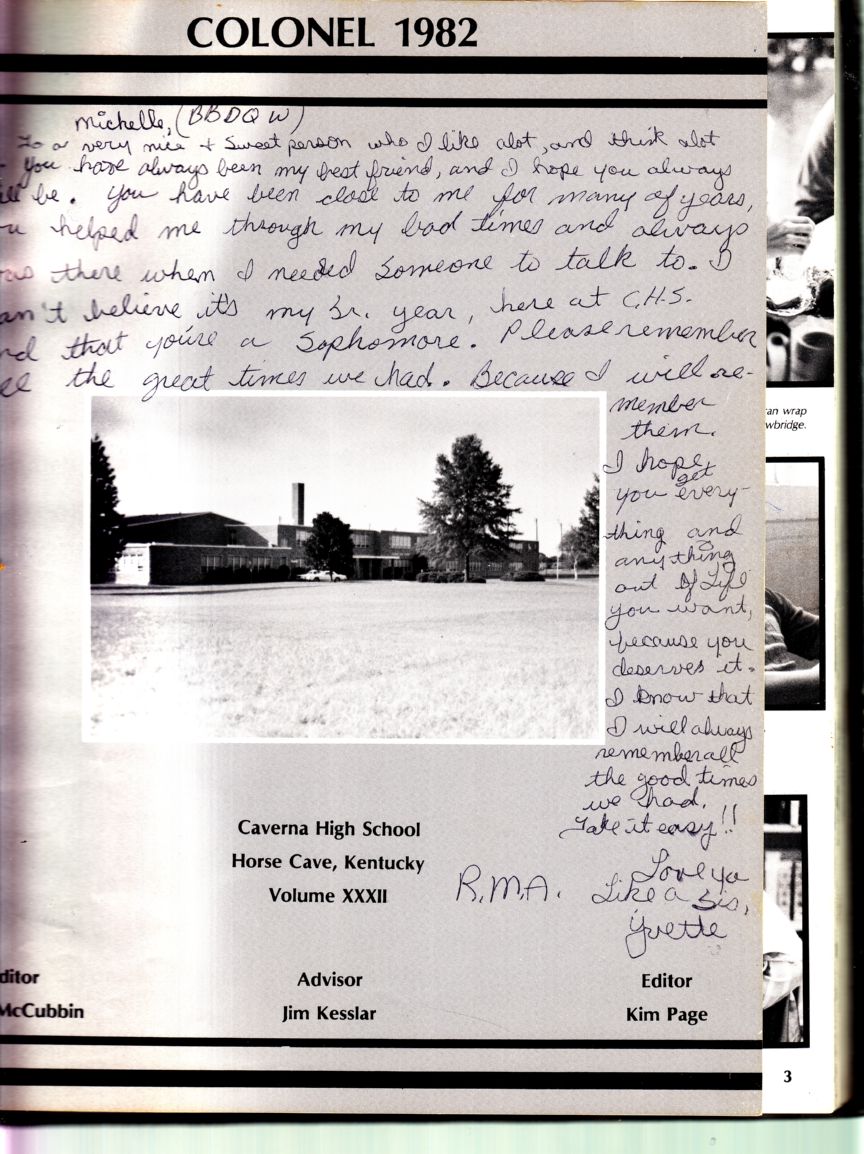 COLONEL 1982
Michelle, (BBDQW)
To a very nice + Sweet person who I like alot, and think alot
you have always been my best friend, and I hope you always
ll be. You have been close to me for many of years,
u helped me through my bad times and always
as there when I needed someone to talk to. I
an't believe it's my Sr. year, here at C.H.S.
nd that you're a Sophomore. Please remember
ll the great times we had. Because I will re-
member
them.
I hope
you get every-
thing and
anything
out of Life
you want,
because you
deserves it.
I know that
I will always
remember all
the good times
we had.
Take it easy!!
Love ya
Like a Sis,
Yvette
R.M.A.
Caverna High School
Horse Cave, Kentucky
Volume XXXII
ditor
McCubbin
Advisor
Jim Kesslar
Editor
Kim Page
an wrap
wbridge.
3